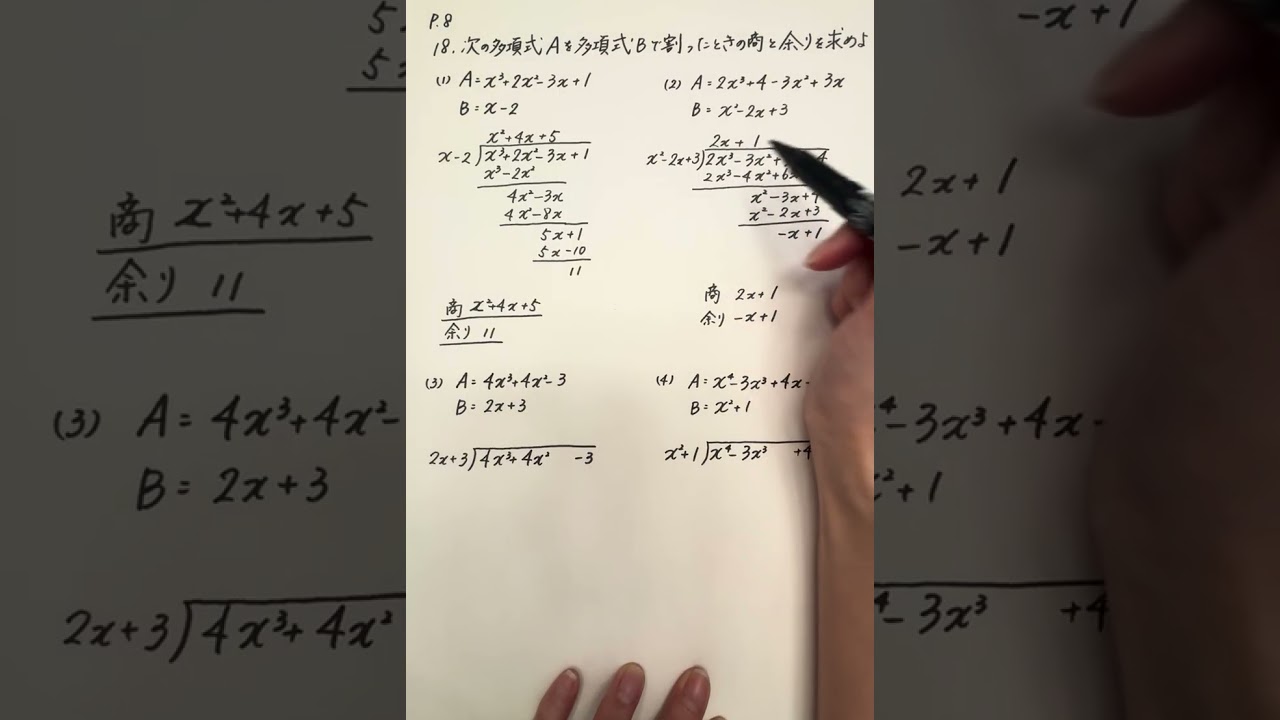 P.8
18. 次の多項式Aを多項式Bで割ったときの商と余りを求めよ
(1) A=x³+2x²-3x+1
B=x-2
x²+4x+5
x-2)x³+2x²-3x+1
x³-2x²
4x²-3x
4x²-8x
5x+1
5x-10
11
商 x²+4x+5
余り 11
(2) A=2x³+4-3x²+3x
B=x²-2x+3
2x+1
x²-2x+3)2x³-3x²+
2x³-4x²+6
x²-3x+4
x²-2x+3
-x+1
商 2x+1
余り -x+1
(3) A=4x³+4x²-3
B=2x+3
2x+3)4x³+4x² -3
(4) A=x⁴-3x³+4x-
B=x²+1
x²+1)x⁴-3x³ +4